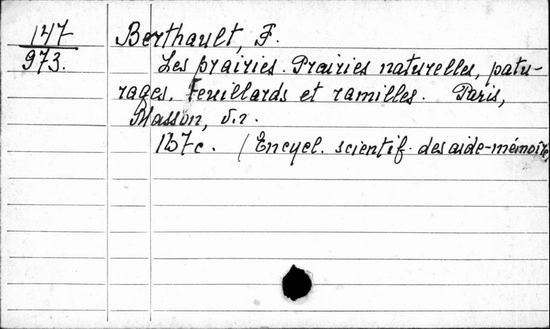 147
973.
Berthault, F.
Les prairies. Prairies naturelles, patu-
rages. Feuillards et ramilles. Paris,
Masson,
167c. (Encycl. scientif. des aide-mémoire